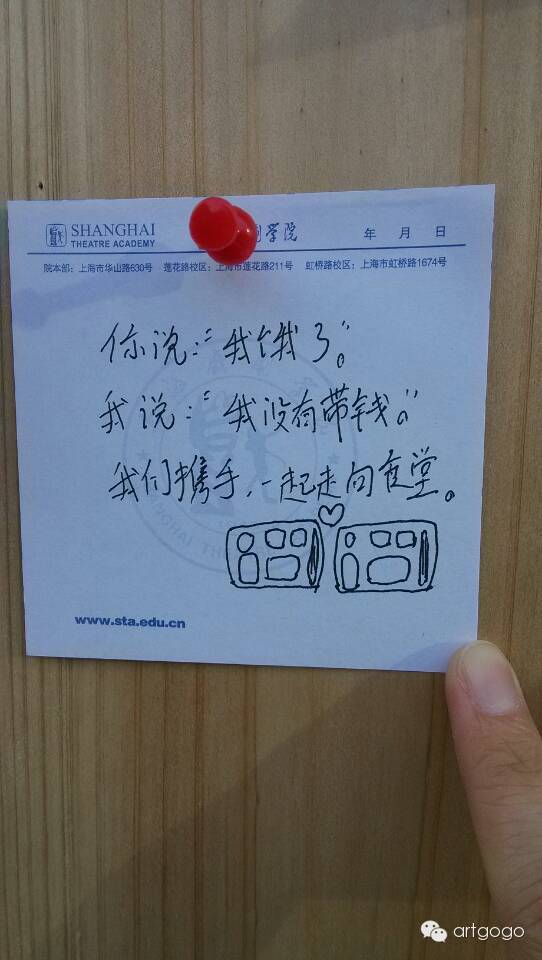 SHANGHAI
THEATRE ACADEMY
学院
年 月 日
院本部：上海市华山路630号 莲花路校区：上海市莲花路211号 虹桥路校区：上海市虹桥路1674号
你说：“我饿了。”
我说：“我没有带钱。”
我们携手，一起走向食堂。
www.sta.edu.cn
artgogo